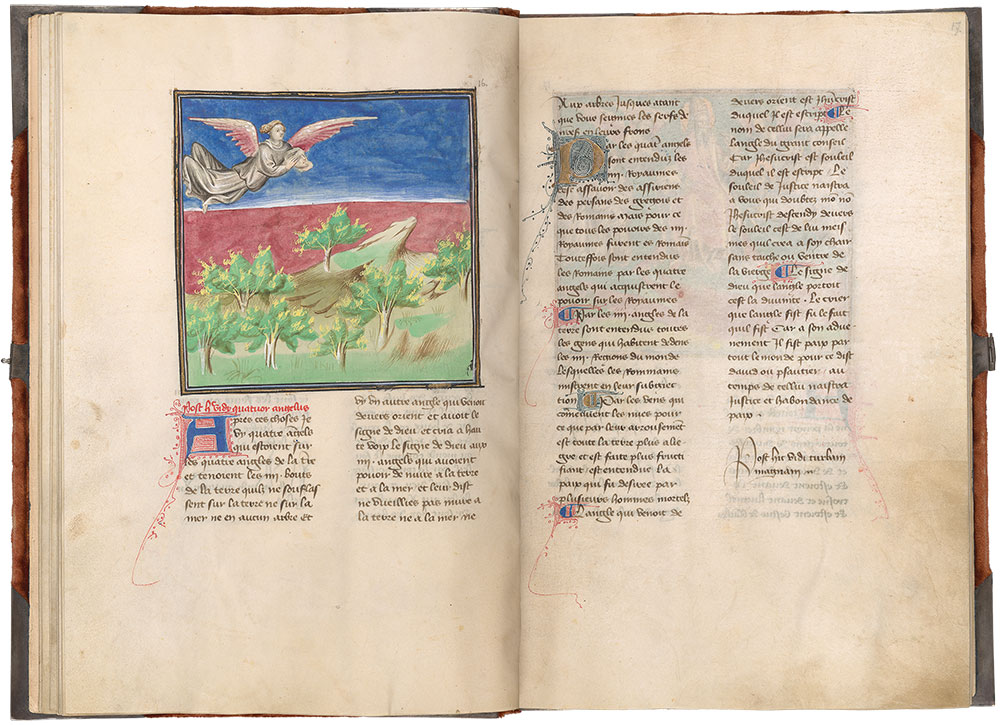 16
Post h vidy quatuor angelus
Apres ces choses Je
vy quatre angels
qui estoient sur
les quatre angles de la tre
et tenoient les iiii. bouts
de la terre quilz ne souflas
sent sur la terre ne sur la
mer ne en aucun arbre et
vy vn autre angle qui venoit
devers orient et avoit le
signe de dieu et cria a hau
te voix le signe de dieu aux
iiii. angels qui avoient
povoir de nuire a la terre
et a la mer et leur dist
ne vueillies pas nuire a
la terre ne a la mer ne
17
Aux arbres Jusques atant
que nous seignies les serfs de
dieu en leurs frons
Par les quatre angels
sont entenduz les
iiii. Royaumes
cest assavoir des assiriens
des persans des gregois et
des Romains Mais pour ce
que tous les povoirs des iiii.
Royaumes furent es Romais
Touteffois sont entendus
les Romains par les quatre
angels qui acquistrent le
povoir sur les Royaumes
Par les iiii. angles de la
terre sont entendus toutes
les gens qui habitent dedens
les iiii. Regions du monde
lesquelles les Rommains
mistrent en leur subiec
tion Par les vens qui
conduisent les nues pour ce
que par leur arrousement
est toute la terre plus ale
gre et est faite plus fructi
fiant est entendue la
paix qui fu desiree par
plusieurs hommes mortelz
Langle qui venoit de
devers orient est Jhucrist
duquel il est escript Le
nom de cellui sera appelle
langle du grant conseil
Car Jhesucrist est souleil
duquel il est escript. Le
souleil de Justice naistra
a vous qui doubtez mon nom
Jhesucrist descendy devers
le souleil cest de lui meis
mes qui crea a soy char
sans tache ou ventre de
la vierge Le signe de
dieu que langle portoit
cest la divinite. Le crier
que langle fist fu le fait
quil fist Car a son adve
nement Il fist paix par
tout le monde pour ce dist
david ou psautier. au
temps de cellui naistra
Justice et habondance de
paix.
Post hic vidi turbam
magnam